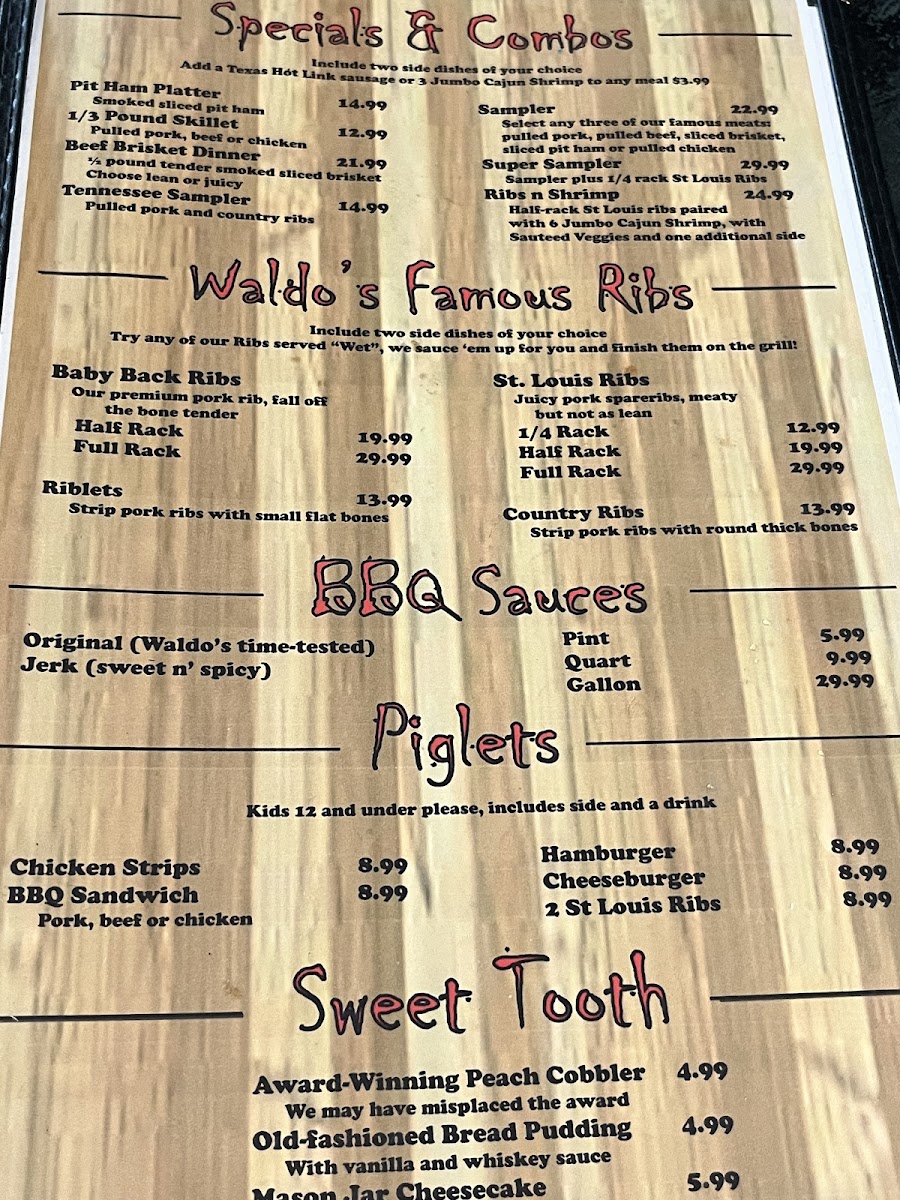 Specials & Combos
Include two side dishes of your choice
Add a Texas Hot Link sausage or 3 Jumbo Cajun Shrimp to any meal $3.99
Pit Ham Platter 14.99
Smoked sliced pit ham
1/3 Pound Skillet 12.99
Pulled pork, beef or chicken
Beef Brisket Dinner 21.99
½ pound tender smoked sliced brisket
Choose lean or juicy
Tennessee Sampler 14.99
Pulled pork and country ribs
Sampler 22.99
Select any three of our famous meats:
pulled pork, pulled beef, sliced brisket,
sliced pit ham or pulled chicken
Super Sampler 29.99
Sampler plus 1/4 rack St Louis Ribs
Ribs n Shrimp 24.99
Half-rack St Louis ribs paired
with 6 Jumbo Cajun Shrimp, with
Sauteed Veggies and one additional side
Waldo's Famous Ribs
Include two side dishes of your choice
Try any of our Ribs served "Wet", we sauce 'em up for you and finish them on the grill!
Baby Back Ribs
Our premium pork rib, fall off
the bone tender
Half Rack 19.99
Full Rack 29.99
Riblets 13.99
Strip pork ribs with small flat bones
St. Louis Ribs
Juicy pork spareribs, meaty
but not as lean
1/4 Rack 12.99
Half Rack 19.99
Full Rack 29.99
Country Ribs 13.99
Strip pork ribs with round thick bones
BBQ Sauces
Original (Waldo's time-tested)
Jerk (sweet n' spicy)
Pint 5.99
Quart 9.99
Gallon 29.99
Piglets
Kids 12 and under please, includes side and a drink
Chicken Strips 8.99
BBQ Sandwich 8.99
Pork, beef or chicken
Hamburger 8.99
Cheeseburger 8.99
2 St Louis Ribs 8.99
Sweet Tooth
Award-Winning Peach Cobbler 4.99
We may have misplaced the award
Old-fashioned Bread Pudding 4.99
With vanilla and whiskey sauce
Mason Jar Cheesecake 5.99